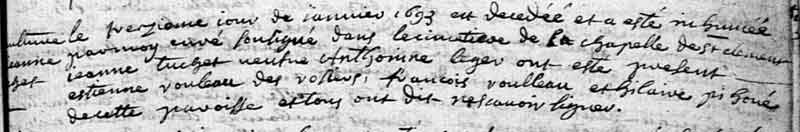 le treizieme jour de janvier 1693 est decedéé et a esté inhuméé
par moy curé soussigné dans le cimetiere de la chapelle de st clement
jeanne tuchet veufve Anthoinne leger ont este present
estienne rouleau des rottiers, francois roulleau et hilaire pi
de cette paroisse et tous ont dit ne scavoir signer.